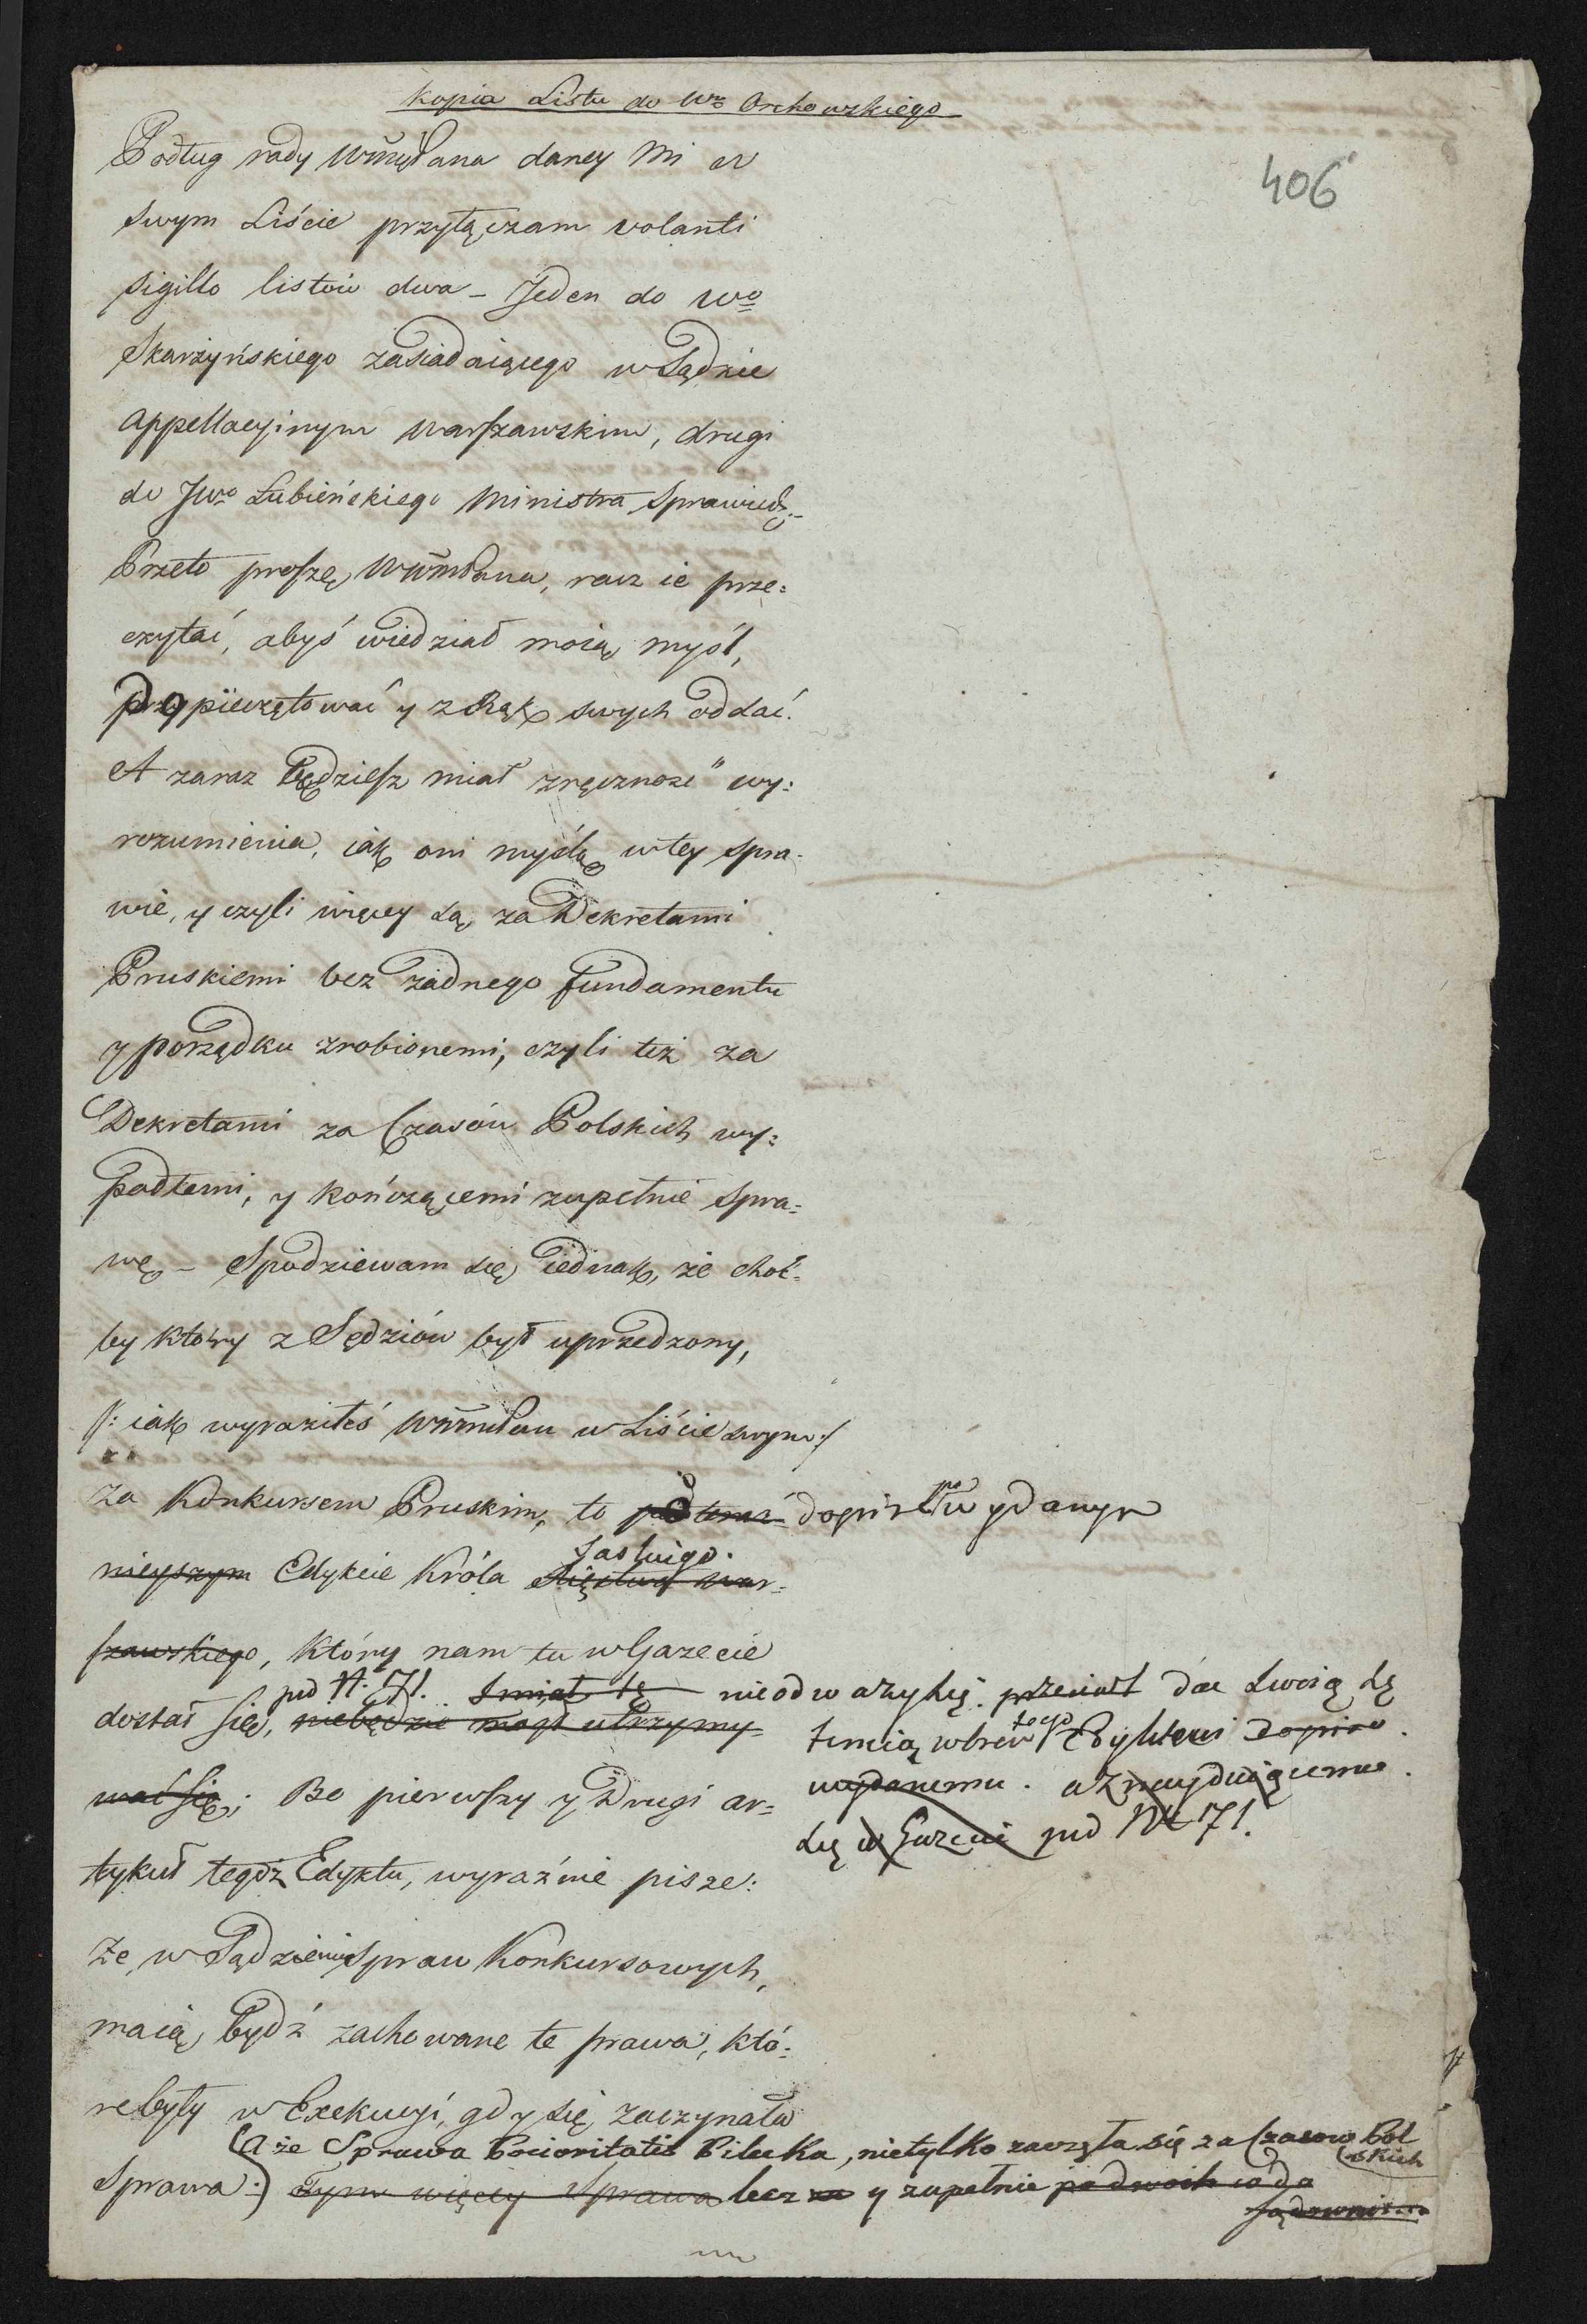 Kopia Listu do Wgo Orchowskiego
406
Podług rady WmPana daney mi w
swym Liście przyłączam volanti
sigillo listów dwa – Jeden do Wo
Skarżyńskiego zasiadaiącego w Sądzie
Appellacyinym Warszawskim, drugi
do JWo Łubieńskiego Ministra Sprawiedl:
Przeto proszę WmPana, racz ie prze:
czytać, abyś wiedział moią myśl,
popieczętować y z Rąk swych oddać.
A zaraz będziesz miał zręczność wy:
rozumienia, iak oni myślą w tey spra:
wie, y czyli więcey są za Dekretami
Pruskiemi bez żadnego fundamentu
y porządku zrobionemi, czyli też za
Dekretami za Czasów Polskich wy:
padłemi, y kończącemi zupełnie spra:
wę – Spodziewam się iednak, że choć:
by który z Sędziów był uprzedzony,
/: iak wyraziłeś WmPan w Liście swym :/
za Konkursem Pruskim, to dopiero po wydanym
nieyszym Edykcie Króla Saskiego. Xięstwa War:
szawskiego, który nam tu w Gazecie
pod N. 71. nieodważy się dać swoią sę
dostał się, niebędzie mógł utrzymy:
tencią wbrew tego Edyktowi dopiro
wać się; Bo pierwszy y Drugi ar:
wydanemu. a znayduiącemu
się w Gazecie pod N 71.
tykuł tegoż Edyktu, wyraźnie pisze:
że, w Sądzeniu Spraw Konkursowych,
maią bydź zachowane te prawa, któ:
re były w Exekucyi, gdy się zaczynała
(A że Sprawa Prioritatis Pilecka, nietylko zaczęła się za Czasów Pol
skich
Sprawa:) Tym więcey Sprawa lecz y zupełnie